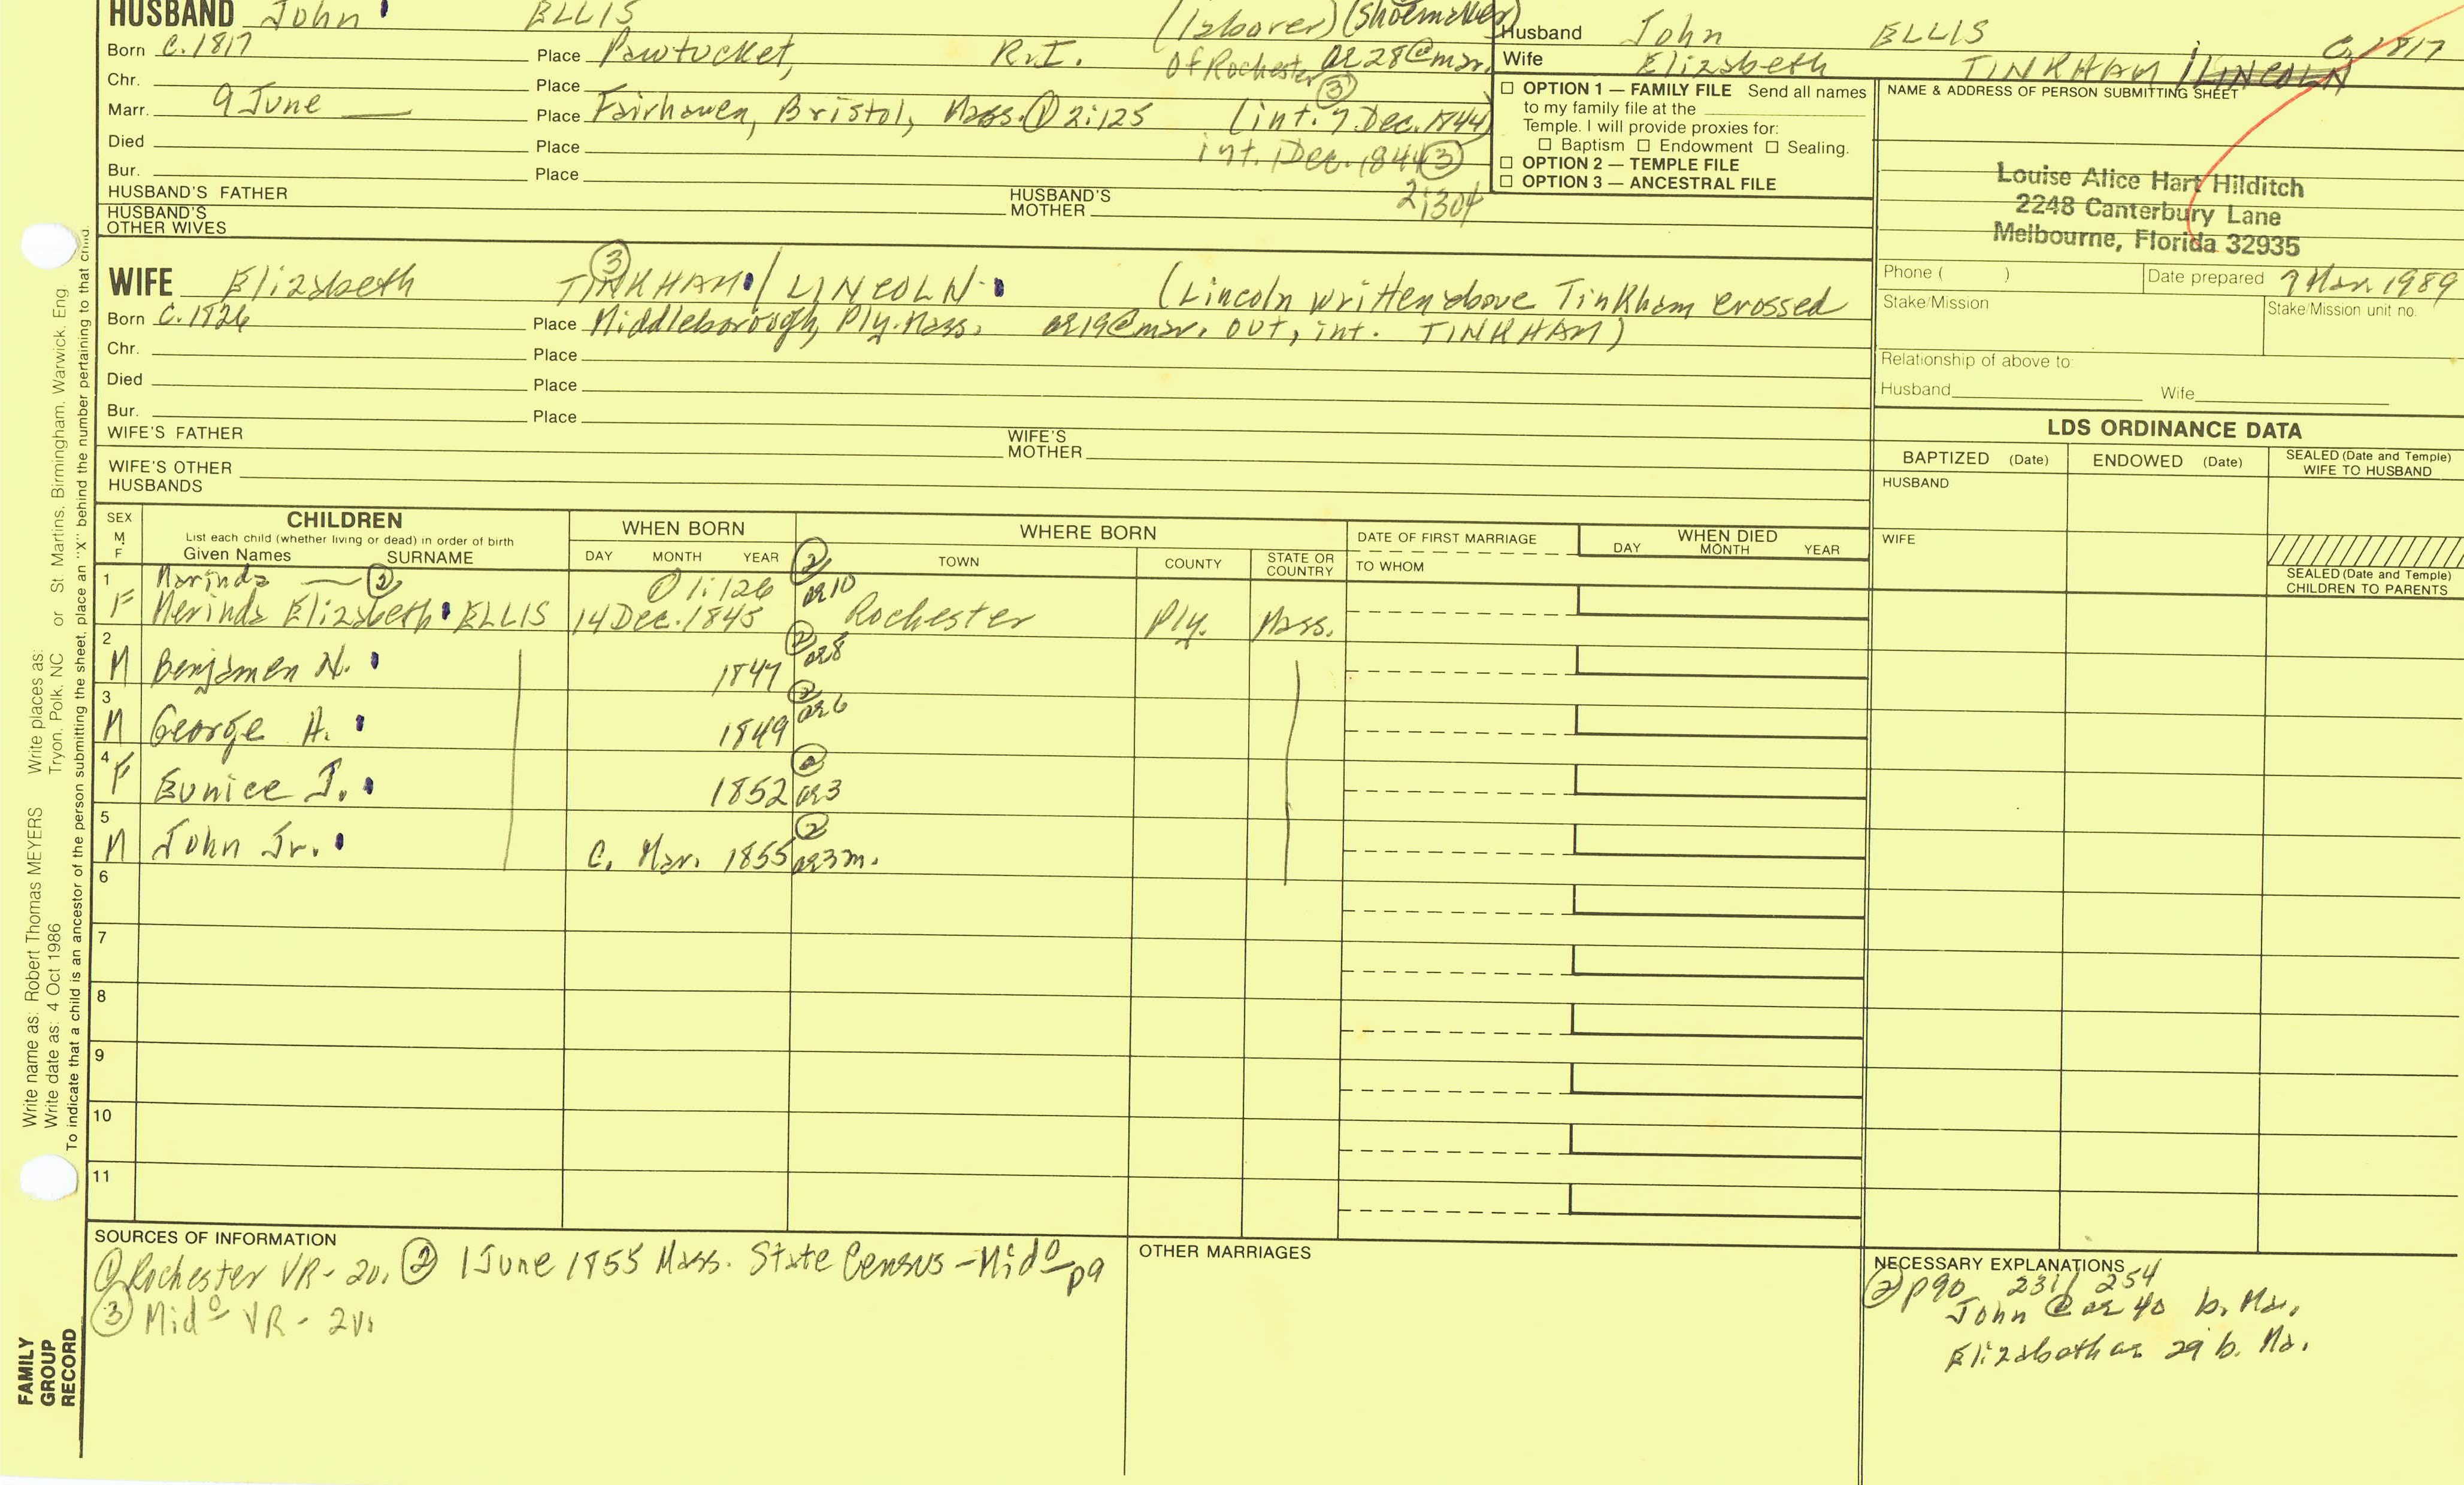 HUSBAND John ELLIS (laborer) (shoemaker)
Born C. 1817 Place Pawtucket, R.I. of Rochester ③ ae 28 @ mar.
Chr. Place
Marr. 9 June Place Fairhaven, Bristol, Mass. ① 2:125 (int. 7 Dec. 1844)
Died Place int. 1 Dec. 1844 ③
Bur. Place 2:304
HUSBAND'S FATHER HUSBAND'S MOTHER
HUSBAND'S OTHER WIVES
WIFE Elizabeth ③ TINKHAM / LINCOLN (Lincoln written above Tinkham crossed
Born C. 1826 Place Middleborough, Ply. Mass. ae 19 @ mar. out, int. TINKHAM)
Chr. Place
Died Place
Bur. Place
WIFE'S FATHER WIFE'S MOTHER
WIFE'S OTHER HUSBANDS
Husband John ELLIS C. 1817
Wife Elizabeth TINKHAM / LINCOLN
☐ OPTION 1 — FAMILY FILE Send all names
to my family file at the
Temple. I will provide proxies for:
☐ Baptism ☐ Endowment ☐ Sealing.
☐ OPTION 2 — TEMPLE FILE
☐ OPTION 3 — ANCESTRAL FILE
NAME & ADDRESS OF PERSON SUBMITTING SHEET
Louise Alice Hart Hilditch
2248 Canterbury Lane
Melbourne, Florida 32935
Phone ( ) Date prepared 7 Mar. 1989
Stake/Mission Stake/Mission unit no.
Relationship of above to:
Husband Wife
LDS ORDINANCE DATA
BAPTIZED (Date) ENDOWED (Date) SEALED (Date and Temple) WIFE TO HUSBAND
HUSBAND
WIFE
SEALED (Date and Temple) CHILDREN TO PARENTS
SEX M F CHILDREN
List each child (whether living or dead) in order of birth
Given Names SURNAME
WHEN BORN DAY MONTH YEAR
WHERE BORN TOWN COUNTY STATE OR COUNTRY
DATE OF FIRST MARRIAGE
TO WHOM
WHEN DIED DAY MONTH YEAR
1 Marinda — ② ① 1:126 ② ae 10
F Merinda Elizabeth ELLIS 14 Dec. 1845 Rochester Ply. Mass.
2 M Benjamen N. 1847 ② ae 8
3 M George A. 1849 ② ae 6
4 F Eunice J. 1852 ② ae 3
5 M John Jr. C. Mar. 1855 ② ae 3m.
6
7
8
9
10
11
SOURCES OF INFORMATION
① Rochester VR - 2v. ② 1 June 1855 Mass. State Census - Midº p9
③ Midº VR - 2v.
OTHER MARRIAGES
NECESSARY EXPLANATIONS
② p90 231/254
John @ ae 40 b. Ma.
Elizabeth ae 29 b. Ma.
Write name as: Robert Thomas MEYERS Write places as: Tryon, Polk, NC or St. Martins, Birmingham, Warwick, Eng
Write date as: 4 Oct 1986
To indicate that a child is an ancestor of the person submitting the sheet, place an "X" behind the number pertaining to that child.
FAMILY
GROUP
RECORD